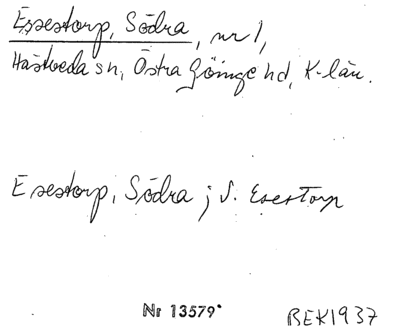 Essestorp, Södra, nr 1,
Hästveda sn, Östra Göinge hd, K-län.
Esestorp, Södra ; S. Esestorp
Nr 13579
BEK1937